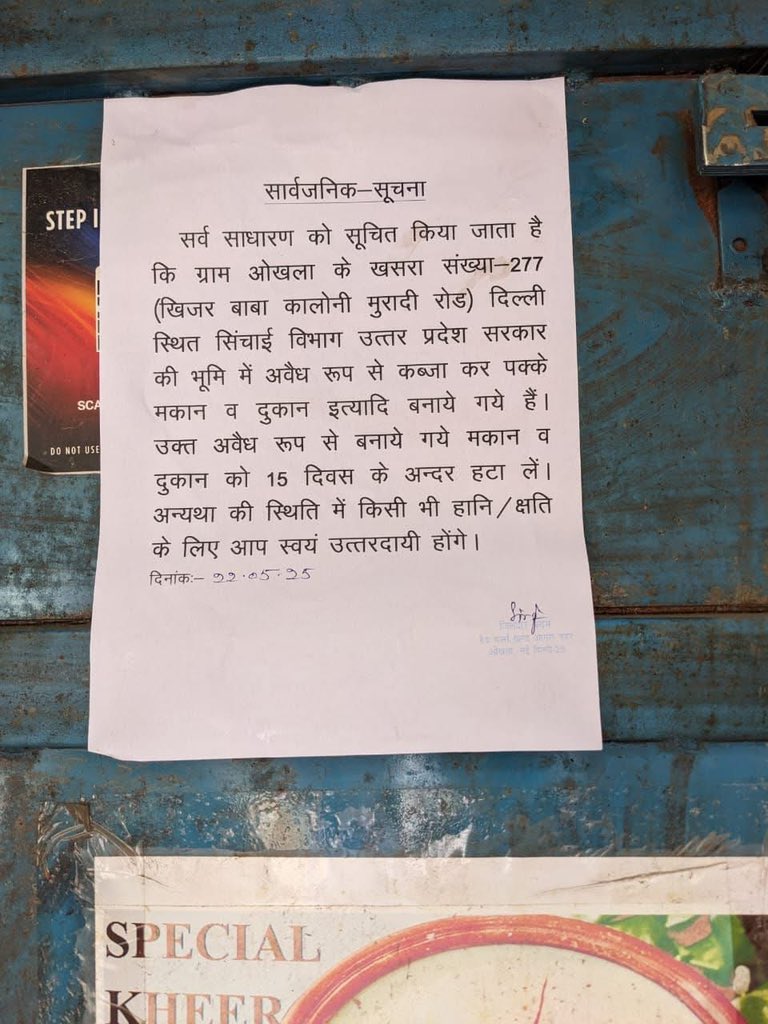 STEP I
SCA
DO NOT USE
सार्वजनिक–सूचना
सर्व साधारण को सूचित किया जाता है
कि ग्राम ओखला के खसरा संख्या–277
(खिजर बाबा कालोनी मुरादी रोड) दिल्ली
स्थित सिंचाई विभाग उत्तर प्रदेश सरकार
की भूमि में अवैध रूप से कब्जा कर पक्के
मकान व दुकान इत्यादि बनाये गये हैं।
उक्त अवैध रूप से बनाये गये मकान व
दुकान को 15 दिवस के अन्दर हटा लें।
अन्यथा की स्थिति में किसी भी हानि/क्षति
के लिए आप स्वयं उत्तरदायी होंगे।
दिनांकः– 22.05.25
ओखला
SPECIAL
KHEER